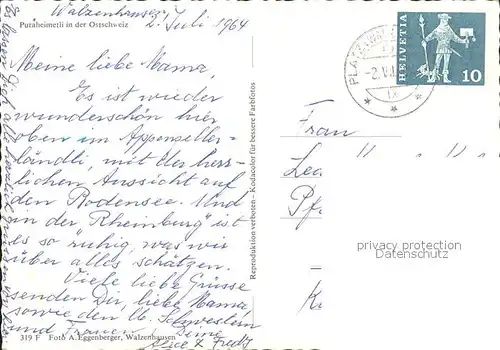 Walzenhausen, 2. Juli 1964
Putzheimetli in der Ostschweiz
Meine liebe Mama,
Es ist wieder
wunderschön hier
oben im Appenzeller-
ländli, mit der herr-
lichen Aussicht auf
den Bodensee. Und
in der "Rheinburg" ist
es so ruhig, was wir
über alles schätzen.
Viele liebe Grüsse
senden Dir, liebe Mama,
sowie den lb. Schwestern
und Frauen Deine
Alice & Fredy
319 F Foto A. Eggenberger, Walzenhausen
Reproduktion verboten - Kodacolor für bessere Farbfotos
HELVETIA
10
PLATZ
-2.VII
IX
Frau
privacy protection
Datenschutz